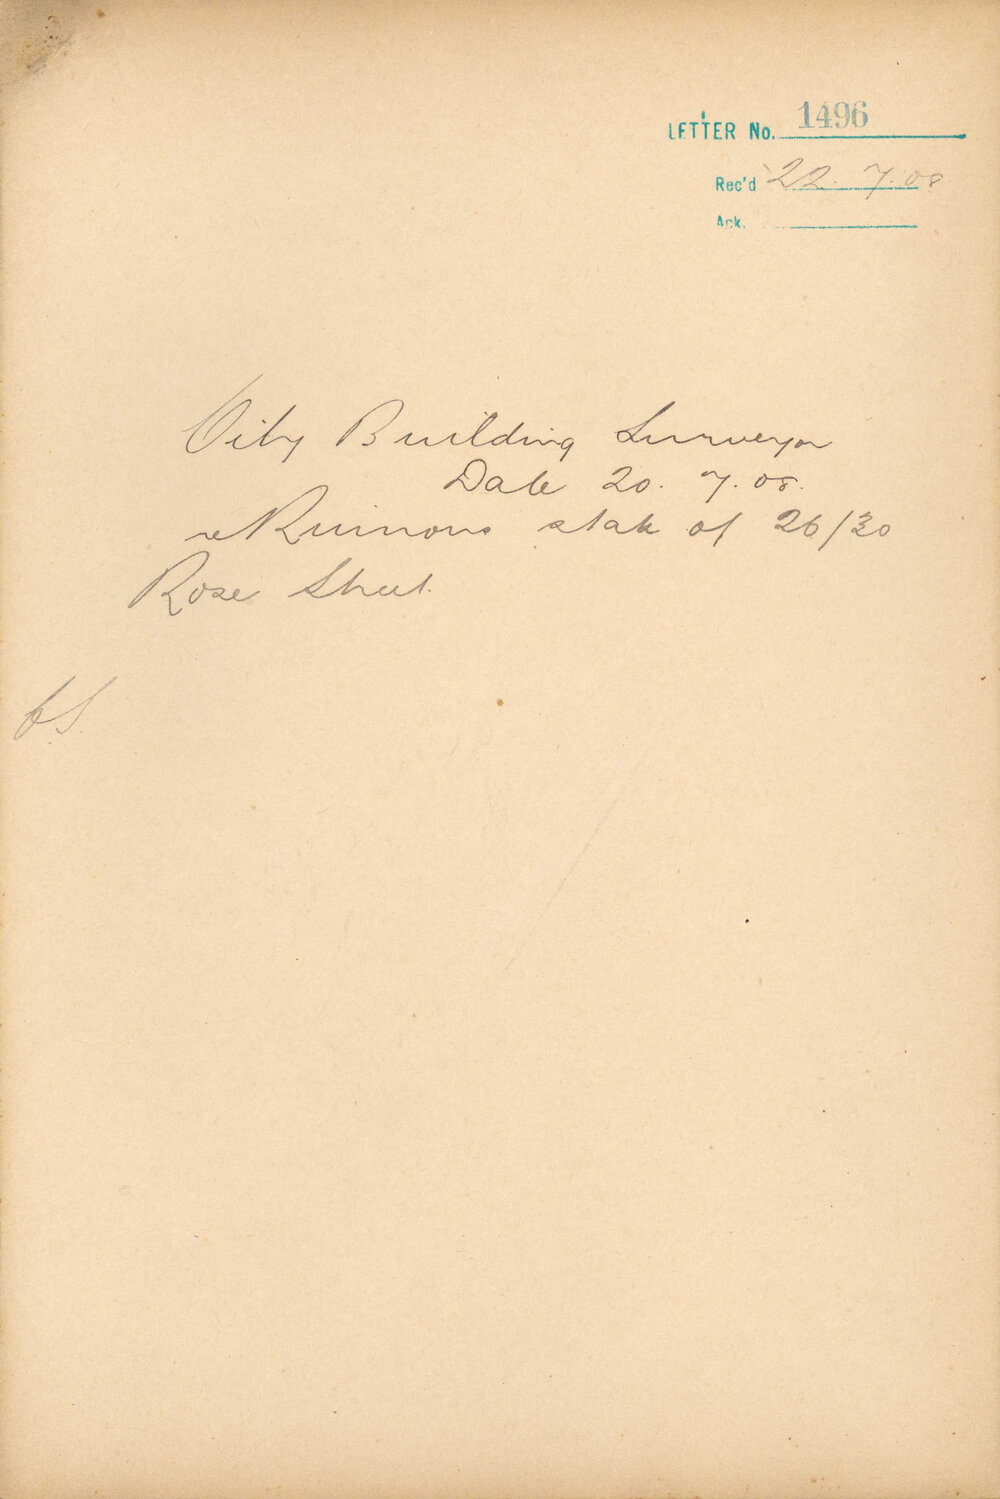 LETTER No. 1496
Rec'd 22. 7. 08
Ack.
City Building Surveyor
Date 20. 7. 08.
re Ruinous state of 26/30
Rose Street.